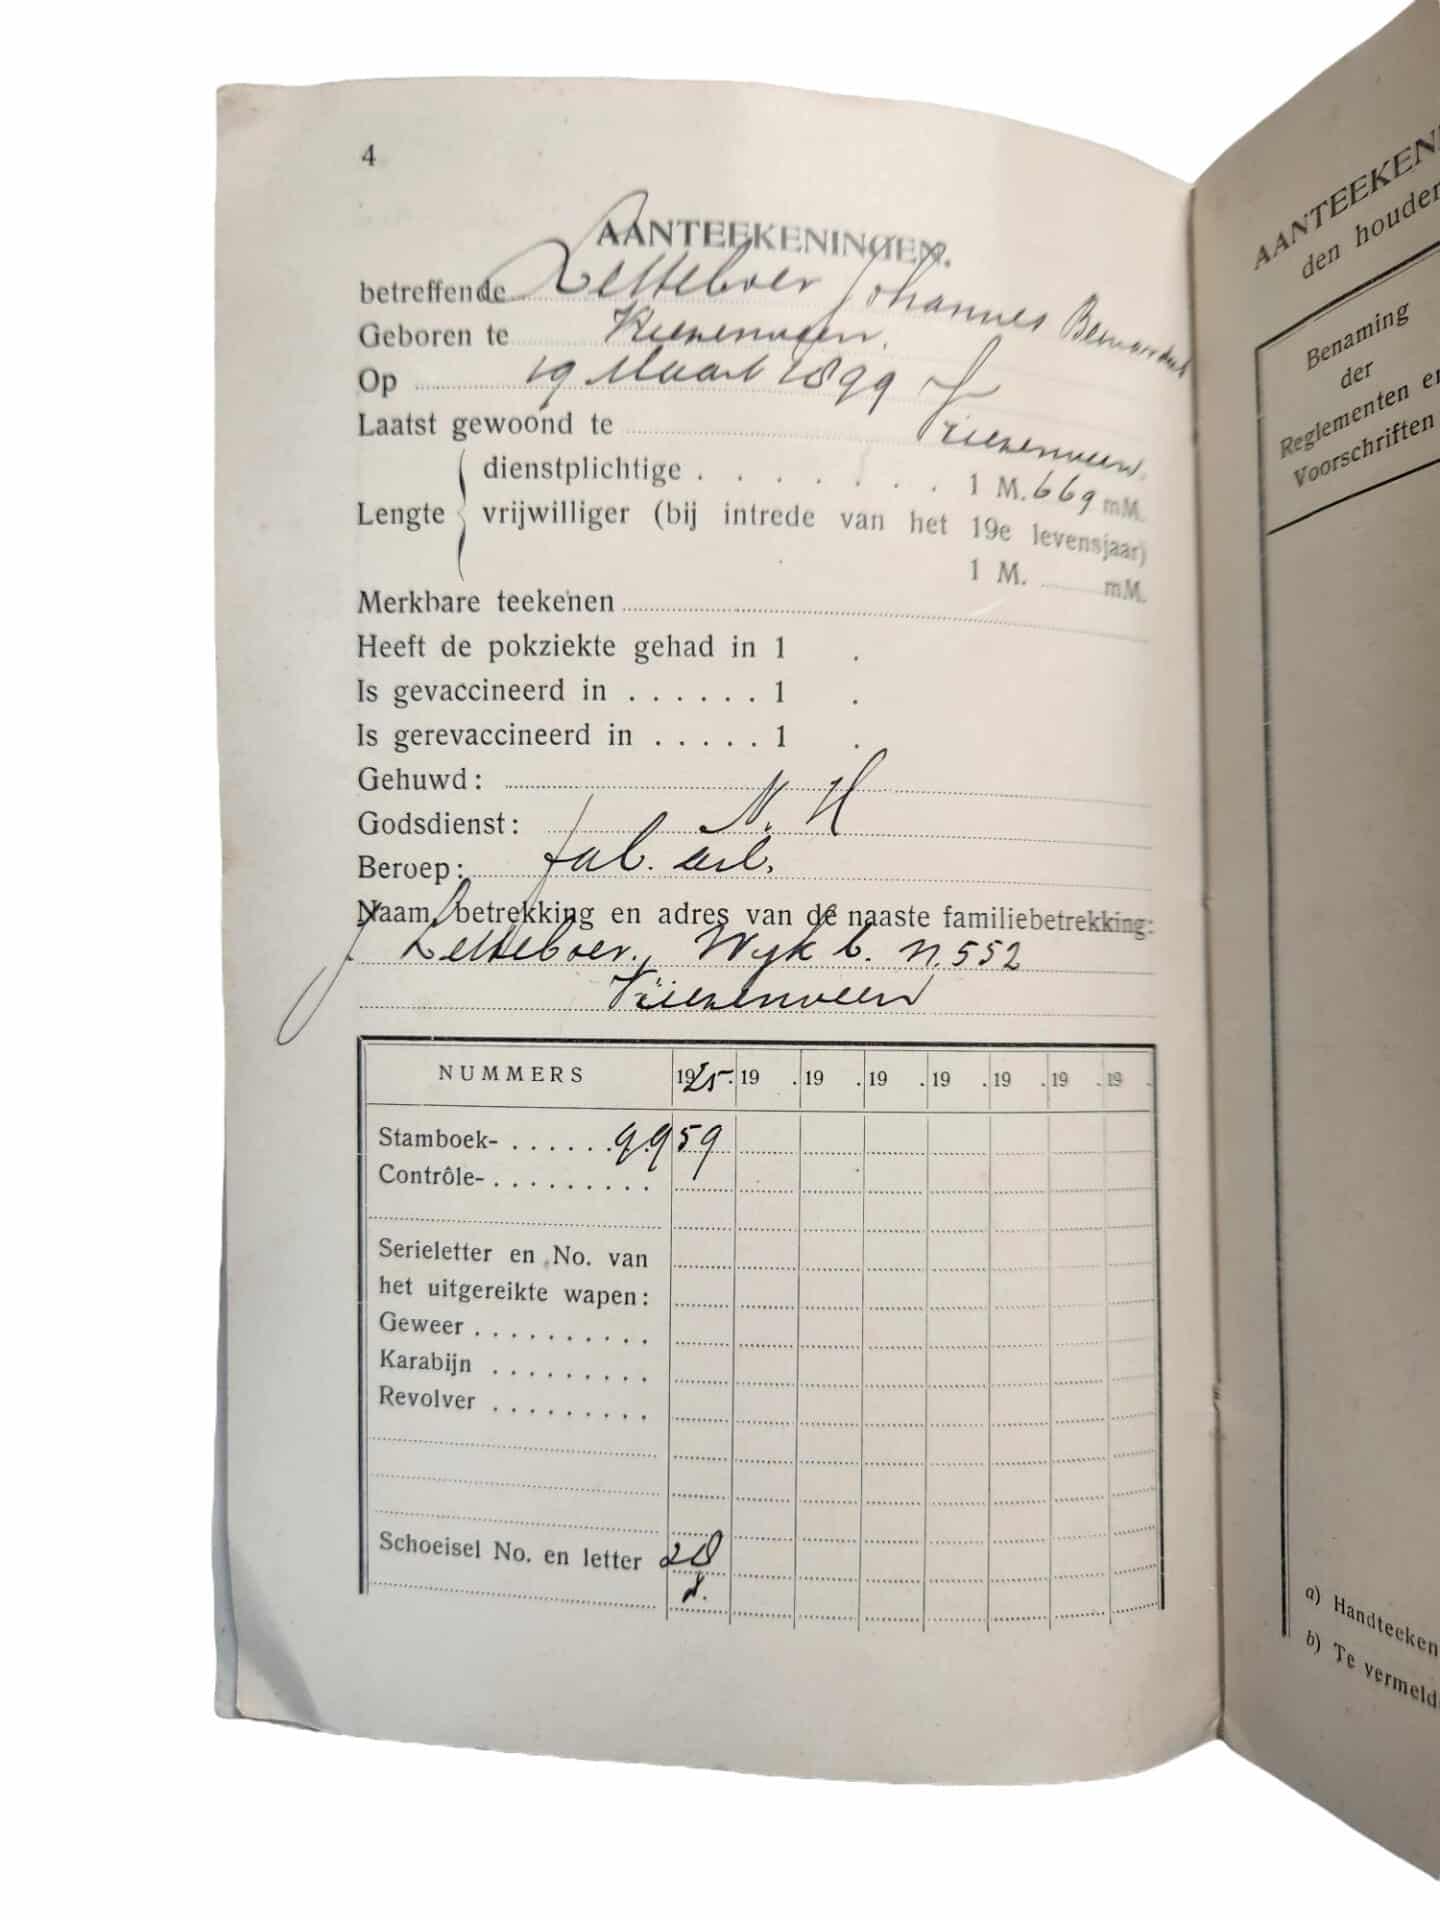 4
AANTEEKENINGEN.
betreffende Letteboer Johannes Bernardus
Geboren te Vriezenveen.
Op 19 Maart 1899
Laatst gewoond te Vriezenveen.
dienstplichtige . . . . . . . 1 M. 669 mM.
Lengte vrijwilliger (bij intrede van het 19e levensjaar)
1 M. mM.
Merkbare teekenen
Heeft de pokziekte gehad in 1 .
Is gevaccineerd in . . . . . . 1 .
Is gerevaccineerd in . . . . . 1 .
Gehuwd:
Godsdienst: N. H
Beroep: fab. arb.
Naam, betrekking en adres van de naaste familiebetrekking:
J Letteboer, Wyk b. N. 552
Vriezenveen
NUMMERS 1925. 19 . 19 . 19 . 19 . 19 . 19 . 19 .
Stamboek- . . . . . . 9959
Contrôle- . . . . . . . . .
Serieletter en No. van
het uitgereikte wapen:
Geweer . . . . . . . . . .
Karabijn . . . . . . . . .
Revolver . . . . . . . . .
Schoeisel No. en letter 28
AANTEEKEN
den houder
Benaming
der
Reglementen en
Voorschriften
a) Handteeken
b) Te vermeld